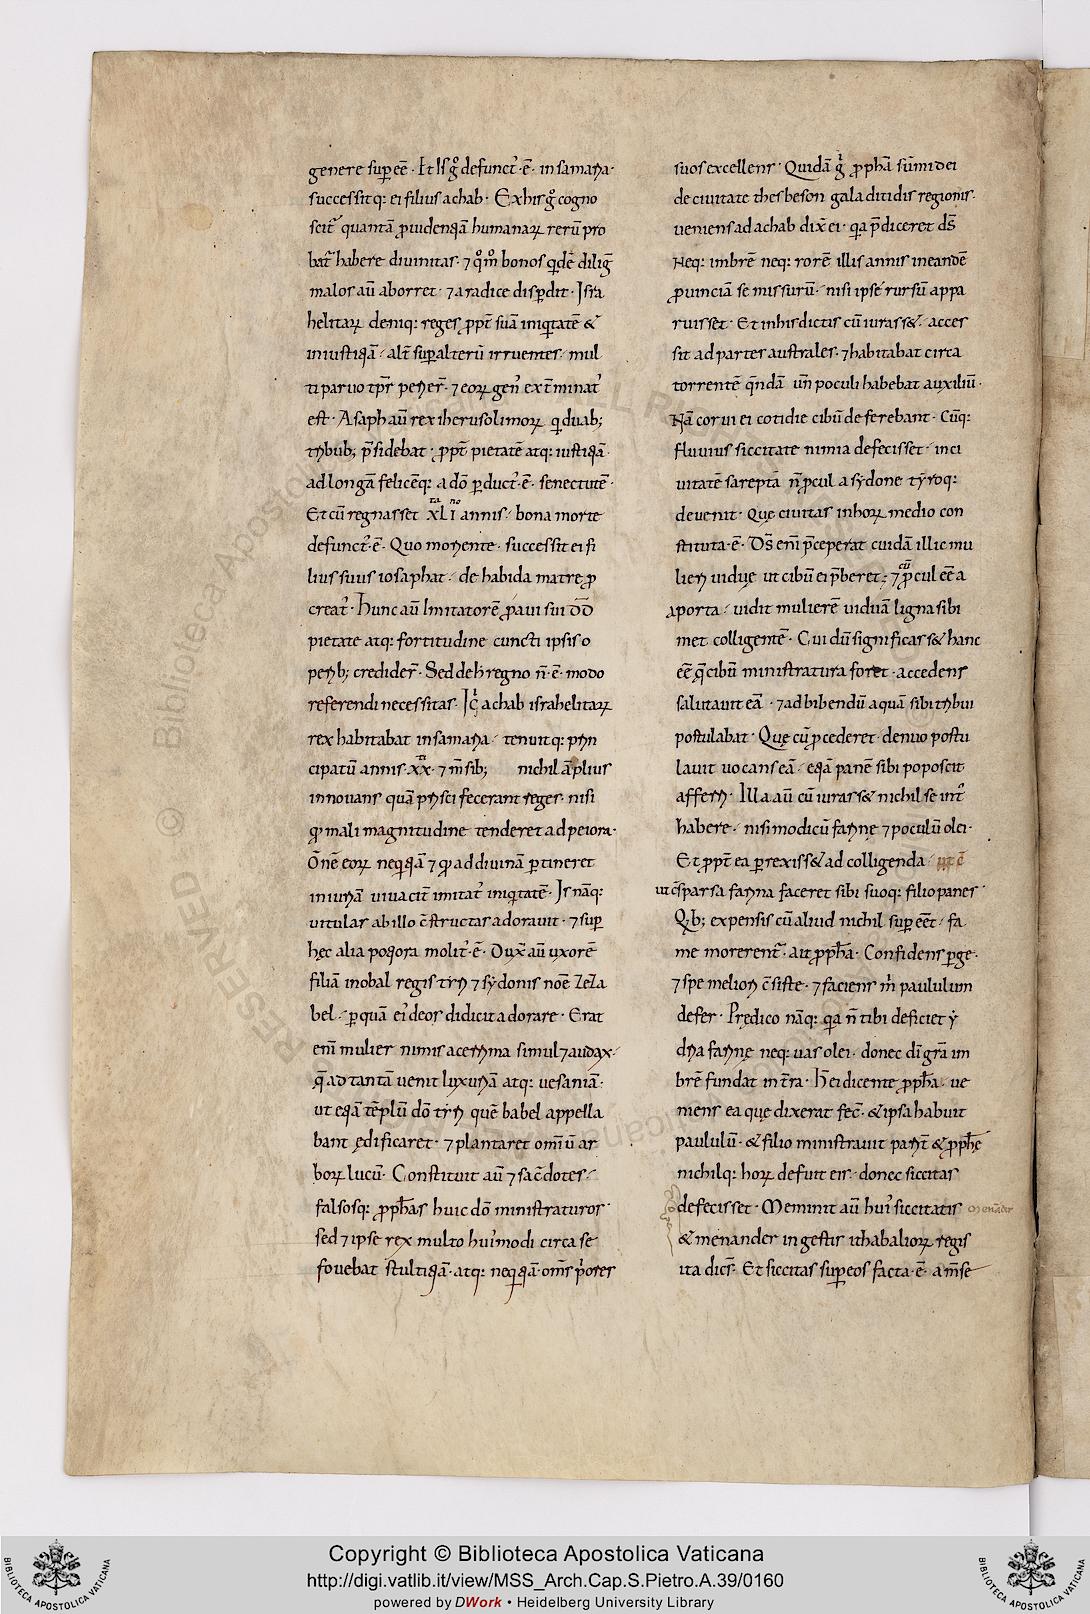 genere suꝑ eē · Et Is gͦ defunctꝰ · ē · in samaria ·
successitq: ei filius achab · Ex his gͦ cogno
scit᷑ quantā ꝓuidentiā humanaꝝ rerū pro
bat᷑ habere divinitas · ⁊ qͦm̄ bonos qͥdē dilig̅
malos aū aborret · ⁊ a radice disꝑdit · Isra
helitaꝝ deniq: reges ꝓpt̄ suā iniqͥtatē &
iniustitiā · alt̄ suꝑ alterū irruentes · mul
ti parvo tp̄r perier̄ · ⁊ eoꝝ gen᷒ ext̄minat᷑
est · Asaph aū rex iherusolimoꝝ qͥ duab;
tribub; p̄sidebat · ꝓpt̄ pietatē atq: iustitiā ·
ad longā felicēq: a dō ꝑduct᷒ · ē · senectutē ·
Et cū regnasset XLI annis · bona morte
defunct᷒ · ē · Quo moriente · successit ei fi
lius suus iosaphat · de habida matre ꝓ
creat᷒ · Hunc aū Imitatorē ꝓavi sui DD̄
pietate atq: fortitudine cuncti ipsis o
perib; credider̄ · Sed de h̄ regno n̄ · ē · modo
referendi necessitas · achab israhelitaꝝ
rex habitabat in samaria · tenuitq: prin
cipatū annis · XX · ⁊ m̄sib; nichil āplius
innovans quā prisci fecerant reges · nisi
qͦ mali magnitudine tenderet ad peiora ·
Ōnē eoꝝ neqͥtiā ⁊ qͦ ad divinā ꝑtineret
iniuriā vivacit̄ imitat᷒ iniqͥtatē · Is nāq:
vitulas ab illo c̄structas adoravit · ⁊ suꝑ
hęc alia pogiora molit᷒ · ē · Dux̄ aū uxorē
filiā inobal regis tyri ⁊ sydonis noē zeza
bel · ꝑ quā ei᷒ deos didicit adorare · Erat
enī mulier nimis acerrima simul ⁊ audax ·
q̄ ad tantā venit luxuriā atq: vesaniā ·
ut etiā tēplū dō tyri quē babel appella
bant ędificaret · ⁊ plantaret omīū ar
boꝝ lucū · Constituit aū ⁊ sac̄dotes ·
falsosq: ꝓph̄as huic dō ministraturos ·
sed ⁊ ipse rex multo hui᷒modi circa se
fovebat stultitiā · atq: neqͥtiā · om̄s p̓ores
suos excellens · Quidā gͥ ꝓphā sūmi dei
de civitate thesbeson galaditidis regionis ·
veniens ad achab dix̄ ei · qͥa p̄diceret dс̄
Neq: imbrē neq: rorē illis annis in eandē
ꝓvinciā se missurū · nisi ipse rursū appa
ruisset · Et in his dictis cū iurass& · acces
sit ad partes australes · ⁊ habitabat circa
torrentē qͥndā uñ poculi habebat auxiliū ·
Nā corvi ei cotidie cibū deferebant · Cūq:
fluvius siccitate nimia defecisset · in ci
vitatē sareptā n̄ ꝓcul a sydone tyroq:
devenit · Quę civitas in hoꝝ medio con
stituta · ē · Dс̄ enī p̄ceperat cuidā illic mu
lieri viduę ut cibū ei p̄beret · ⁊ cū ꝓcul eēt a
porta · vidit mulierē viduā ligna sibi
met colligentē · Cui dū significass& hanc
eē q̄ cibū ministratura foret · accedens
salutavit eā · ⁊ ad bibendū aquā sibi tribui
postulabat · Quę cū ꝓcederet · denuo postu
lavit vocans eā · etiā panē sibi poposcit
afferri · Illa aū cū iurass& nichil se int᷑
habere · nisi modicū farinę ⁊ poculū olei ·
Et ꝓpt̄ ea ꝑrexiss& ad colligenda ·
ut c̄sparsa farina faceret sibi suoq: filio panes ·
Qͥb; expensis cū aliud nichil suꝑeēt · fa
me morerent᷑ · ait ꝓph̄a · Confidens ꝑge ·
⁊ spe meliori c̄siste · ⁊ faciens m̓ paululum
defer · Prędico nāq: qͥa n̄ tibi deficiet y
dria farinę neq: vas olei · donec dī gr̄a im
brē fundat in t̄ra · H̄ ei dicente ꝓph̄a · ve
niens ea quę dixerat fec̄ · & ipsa habuit
paululū · & filio ministravit parit̄ & ꝓph̄ę
nichilq: hoꝝ defuit eis · donec siccitas
defecisset · Meminit aū hui᷒ siccitatis
menāder
& menander in gestis ithabalioꝝ regis
ita dicс̄ · Et siccitas suꝑ eos facta · ē · a m̄se
RESERVED
© Biblioteca Apostolica Vaticana
Copyright © Biblioteca Apostolica Vaticana
http://digi.vatlib.it/view/MSS_Arch.Cap.S.Pietro.A.39/0160
powered by DWork • Heidelberg University Library
BIBLIOTECA APOSTOLICA VATICANA
BIBLIOTECA APOSTOLICA VATICANA